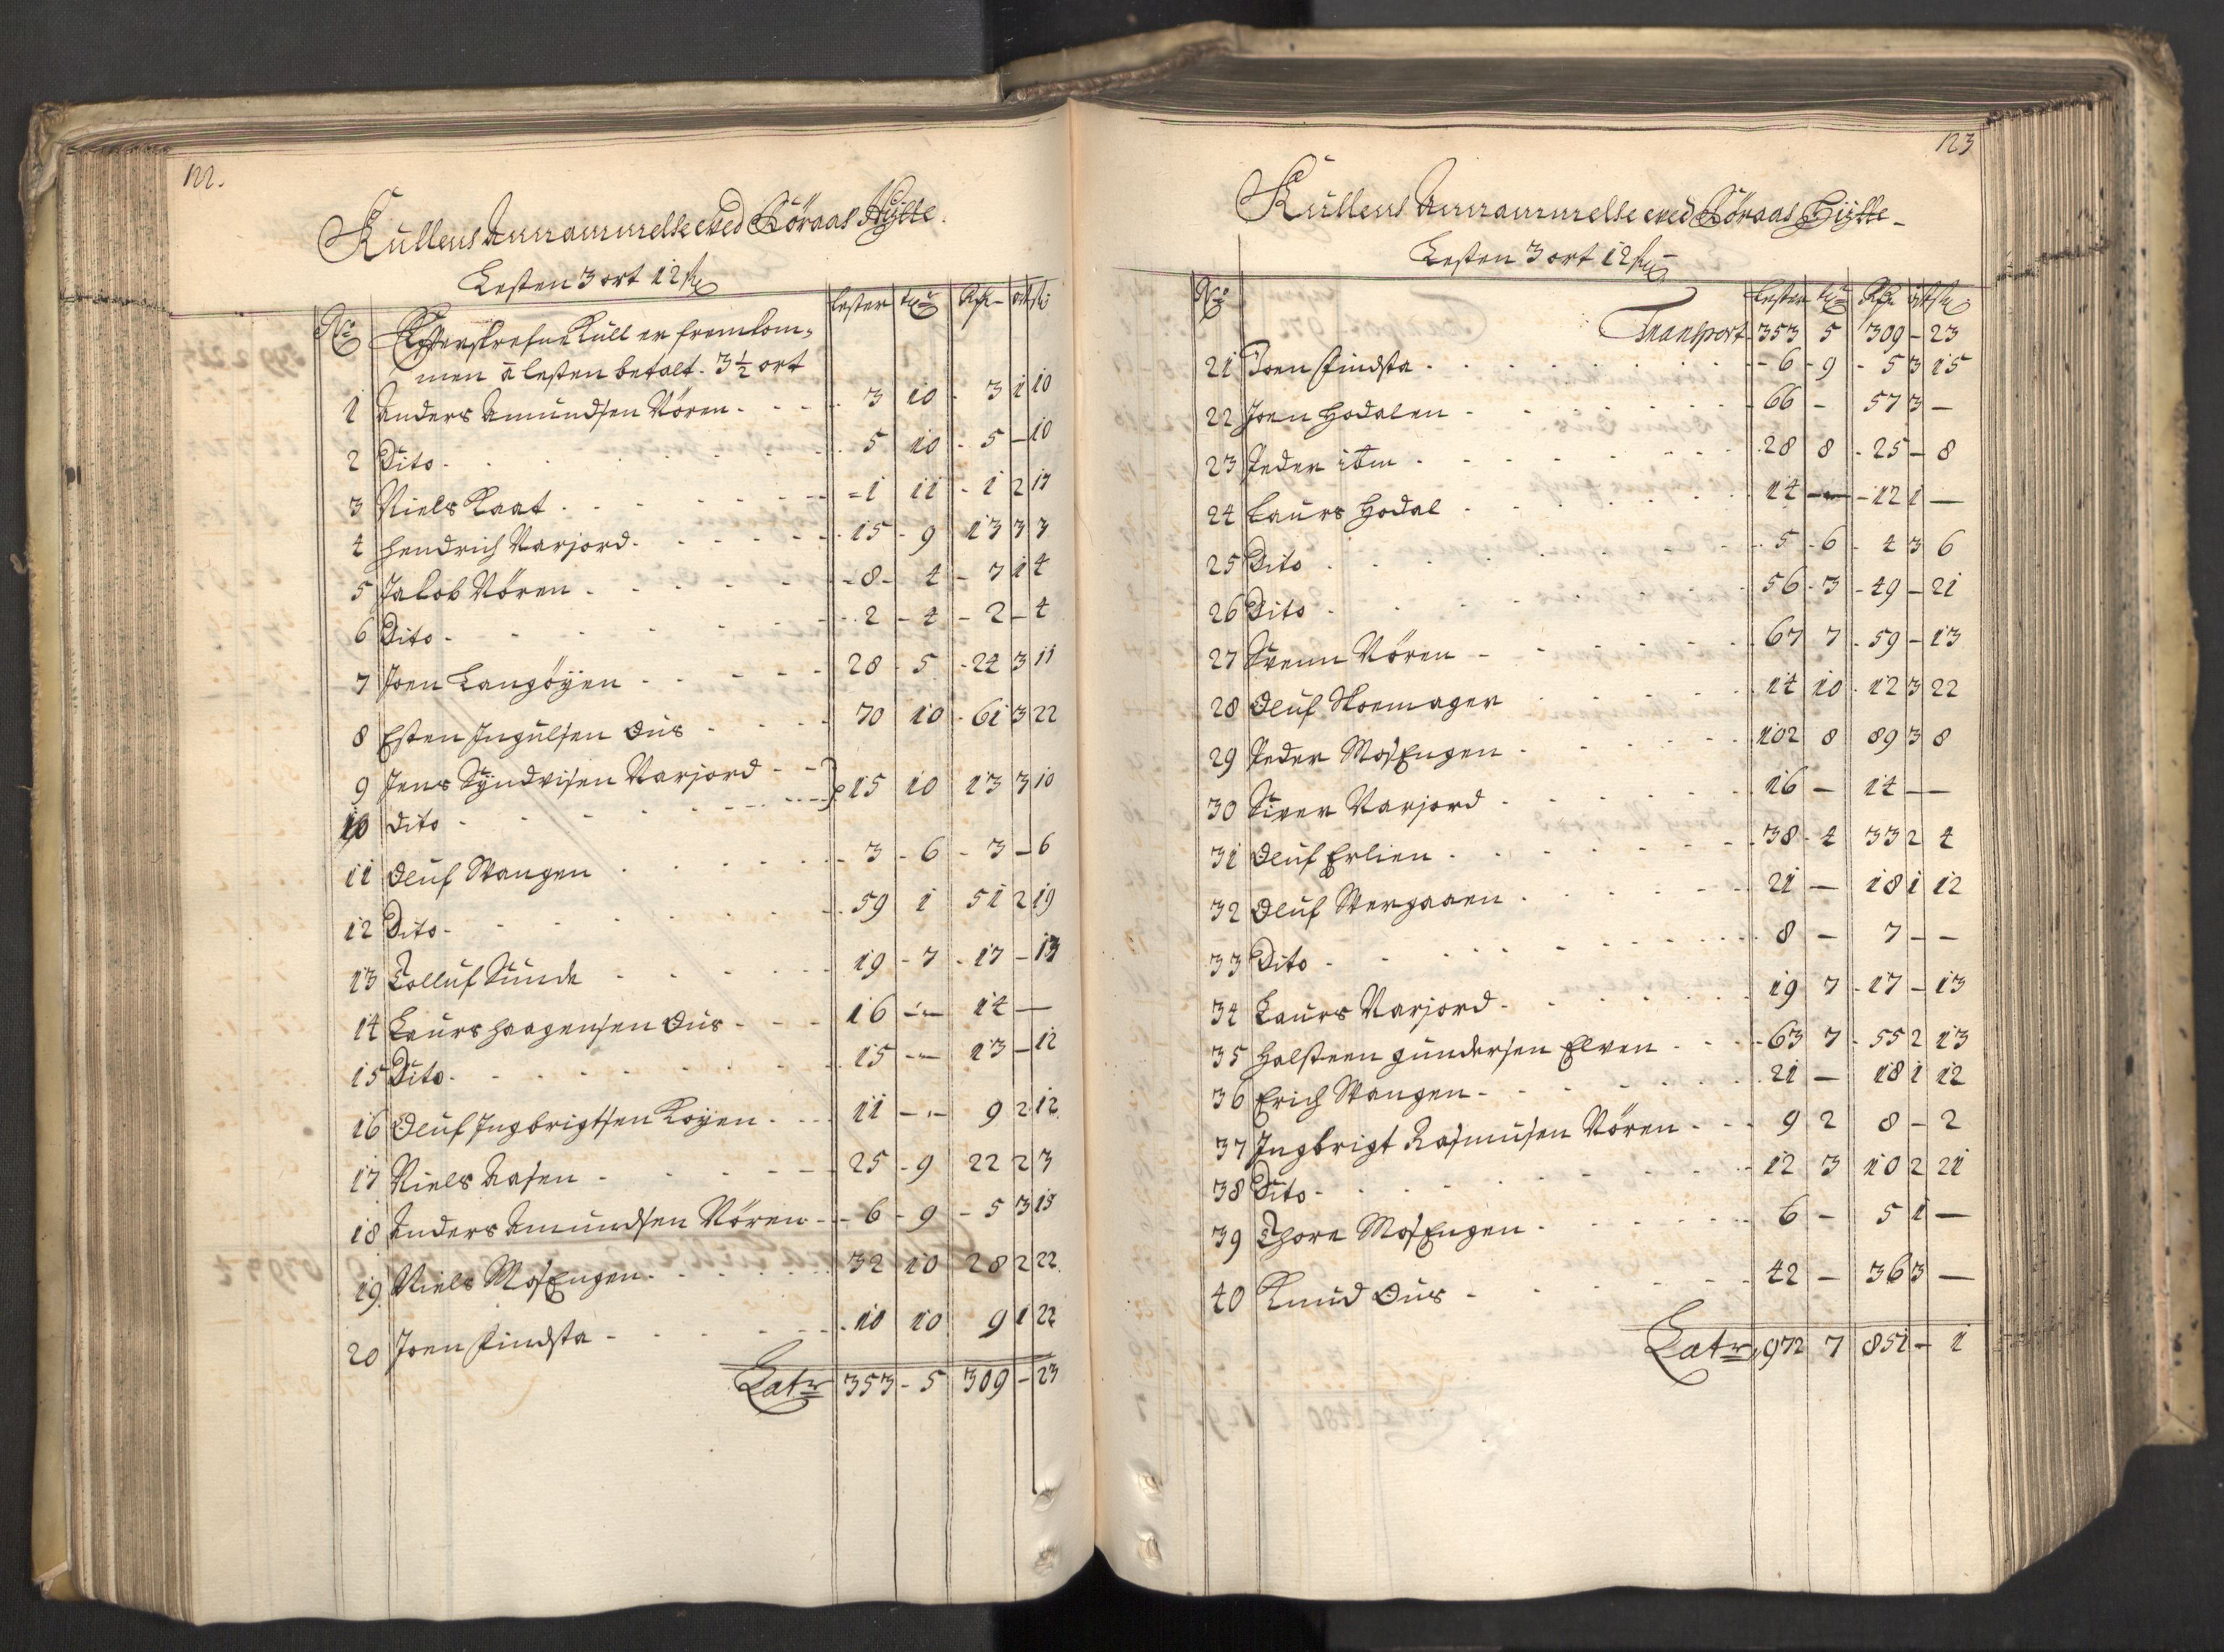 122.
Kullens Annammelse ved Röraas Hÿtte.
Lesten 3 ort 12 sk
No Efterskrefne Kull er fremkom- lester tr Rdr ort sk
men à lesten betalt. 3½ ort
1 Anders Amundsen Vören - - - 3 10 3 1 10
2 Dito 5 10 5 – 10
3 Niels Kaat 1 11 1 2 17
4 Hendrich Narjord 15 9 13 3 3
5 Jakob Vören 8 4 7 1 4
6 Dito 2 4 2 – 4
7 Joen Langöÿen 28 5 24 3 11
8 Esten Ingulsen Ous 70 10 61 3 22
9 Jens Sÿndvisen Narjord
10 dito 15 10 13 3 10
11 Oluf Stangen 3 6 3 – 6
12 Dito 59 1 51 2 19
13 Tolluf Sunde 19 7 17 – 13
14 Laurs Haagensen Ous 16 – 14 –
15 Dito 15 – 13 – 12
16 Oluf Ingbrigtsen Koÿen 11 – 9 2 12
17 Niels Aasen 25 9 22 2 3
18 Anders Amundsen Vören 6 9 5 3 15
19 Niels MosEngen 32 10 28 2 22
20 Joen Findsta 10 10 9 1 22
Latr 353 5 309 – 23
123
Kullens Annammelse ved Röraas Hÿtte
Lesten 3 ort 12 sk
No lester tr Rdr ort sk
Transport 353 5 309 – 23
21 Joen Findsta 6 9 5 3 15
22 Joen Hodalen 66 – 57 3 –
23 Peder ibm 28 8 25 – 8
24 Laurs Hodal 14 – 12 1 –
25 Dito 5 6 4 3 6
26 Dito 56 3 49 – 21
27 Svenn Vören 67 7 59 – 13
28 Oluf Skomager 14 10 12 3 22
29 Peder MosEngen 102 8 89 3 8
30 Siver Narjord 16 – 14 – –
31 Oluf Erlien 38 4 33 2 4
32 Oluf Stergaaen 21 – 18 1 12
33 Dito 8 – 7 – –
34 Laurs Narjord 19 7 17 – 13
35 Halsteen Gundersen Elven 63 7 55 2 13
36 Erich Stangen 21 – 18 1 12
37 Ingbrigt Rasmusen Vören 9 2 8 – 2
38 Dito 12 3 10 2 21
39 Thore MosEngen 6 – 5 1 –
40 Knud Ous 42 – 36 3 –
Latr 972 7 851 – 1